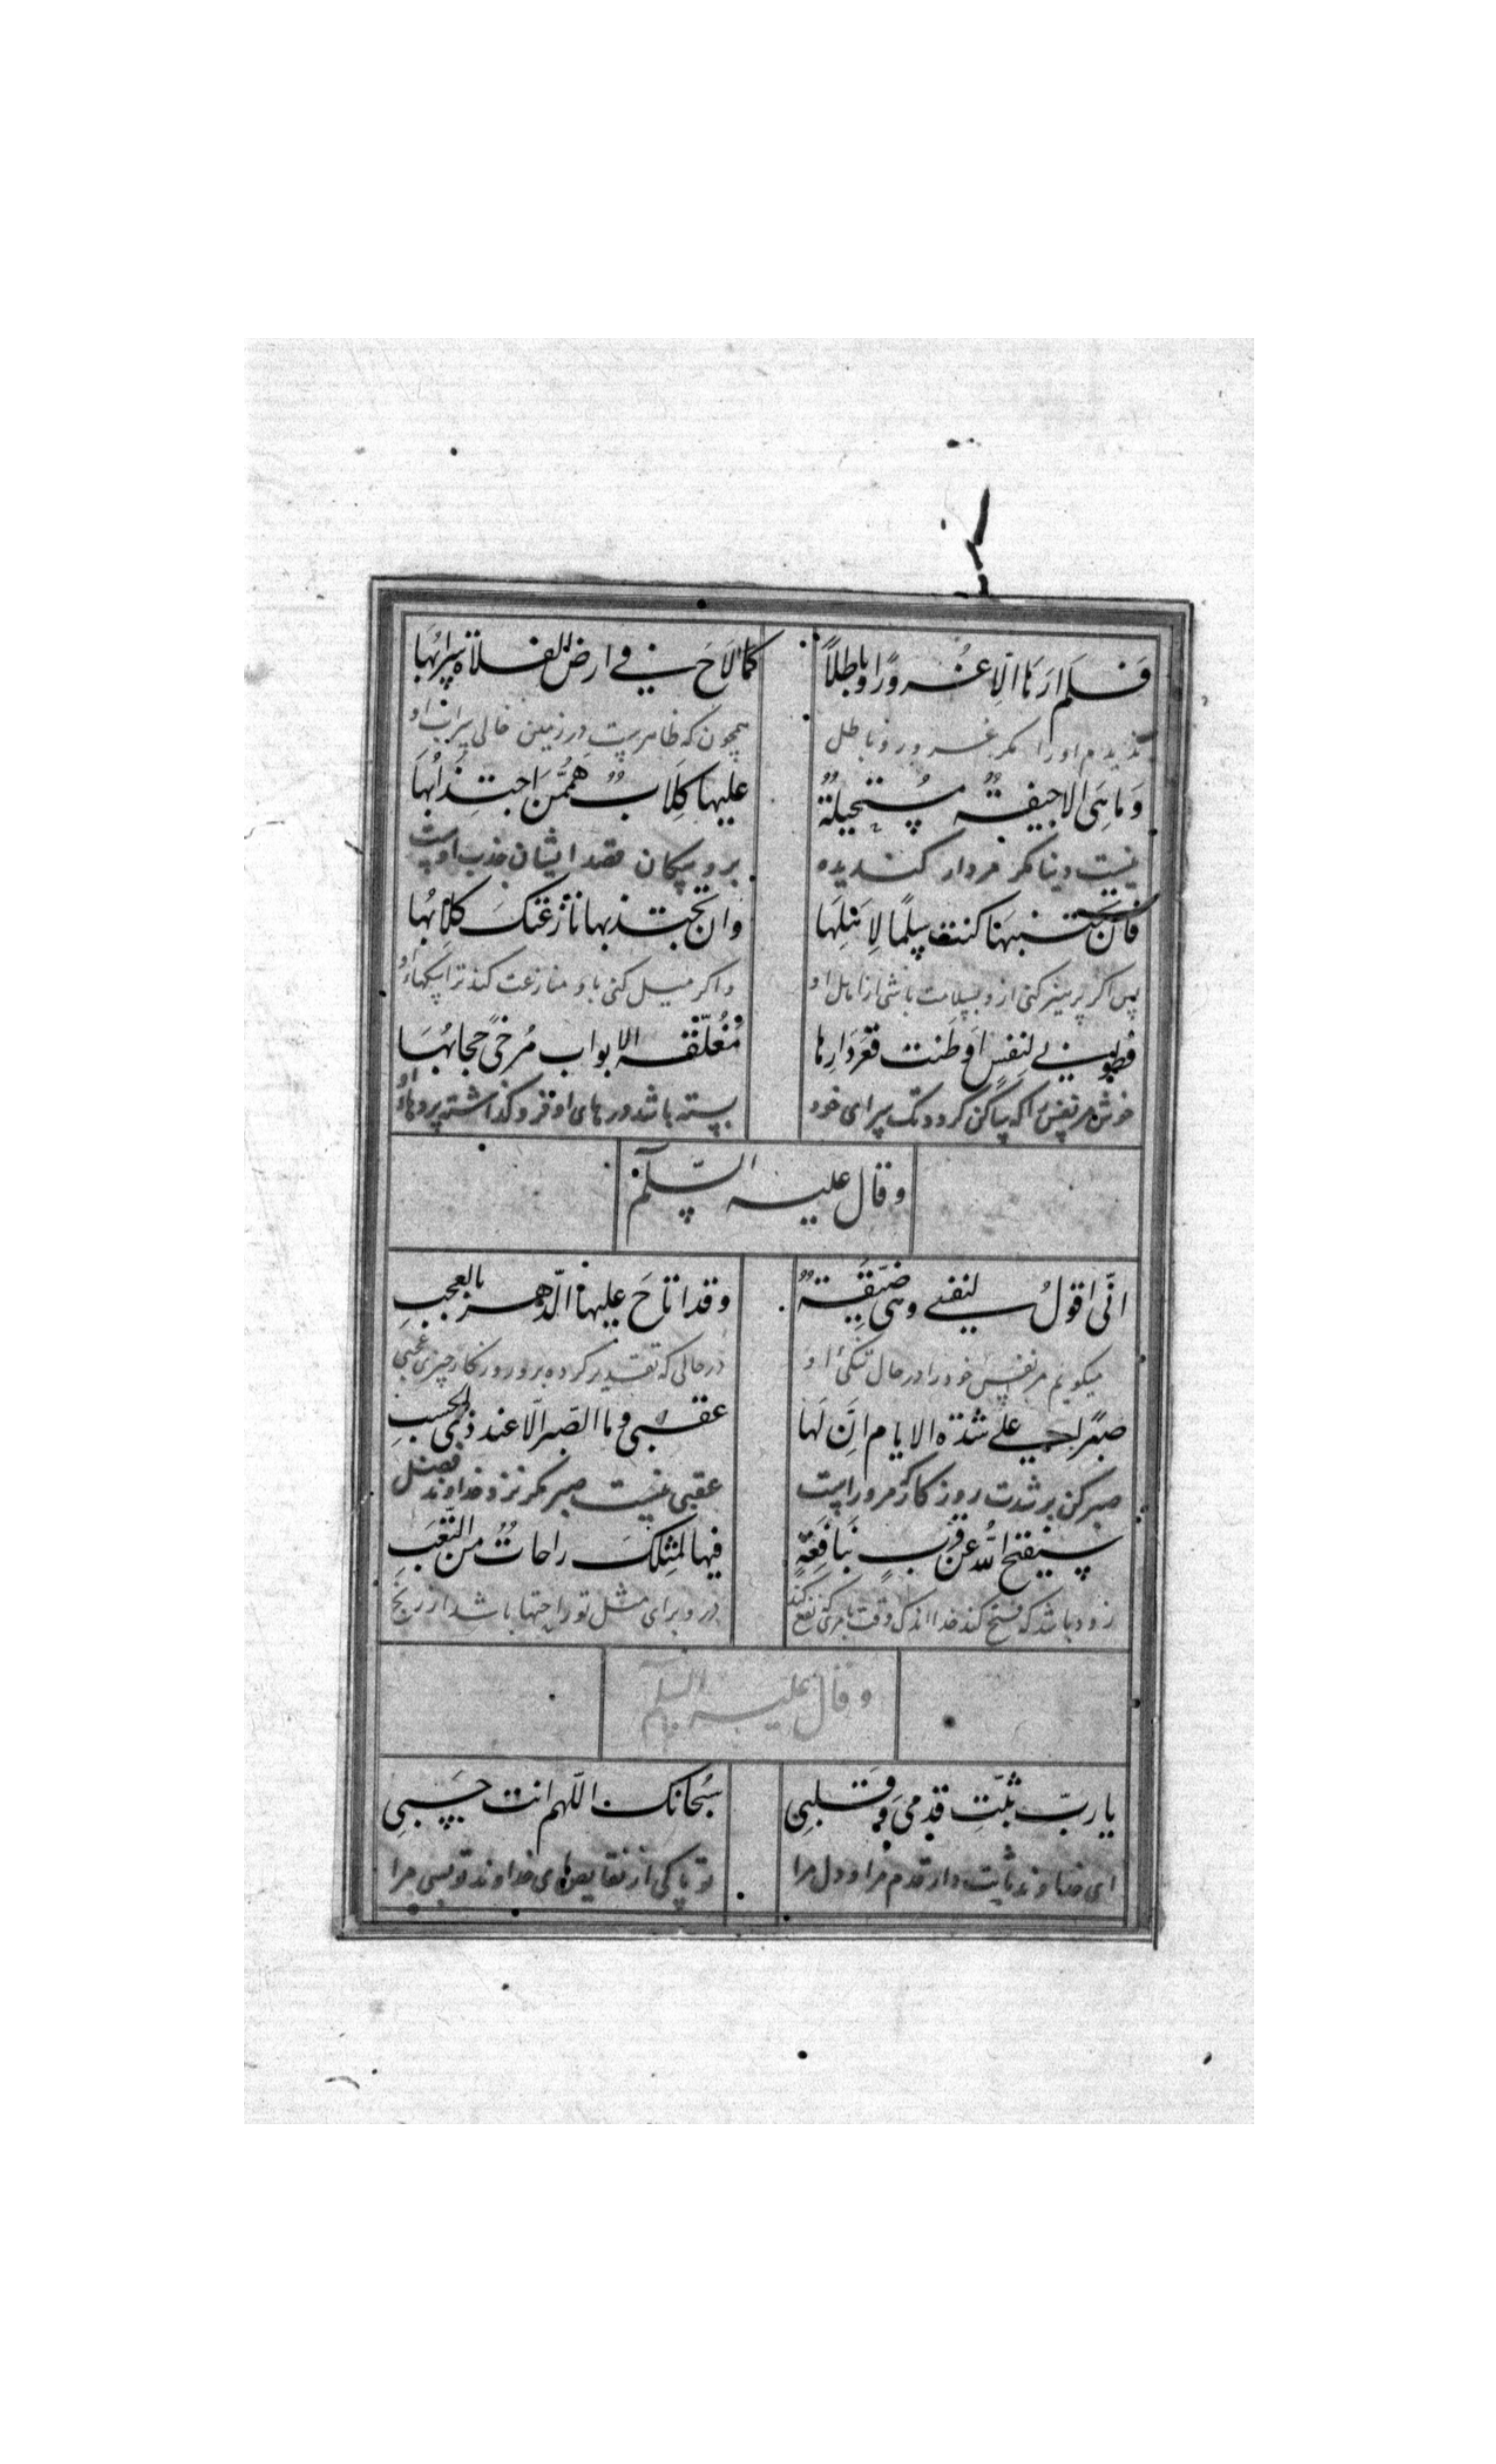 فَلَم اَرَهَا اِلَّا غُرورًا و باطِلاً
كَمَا لَاحَ في ارض الفلاة سَرابُهَا
ندیدم او را مکر غرور و باطل
همچون که ظاهرست در زمین خالی سراب او
وَمَا هِيَ الا جيفةٌ مُستَحيلةٌ
عليها كِلَابٌ هَمُّهنَّ اجتِذابُهَا
نیست دنیا مکر مردار کندیده
برو سکان قصد ایشان جذب اوست
فان تجتنبها كنت سِلمًا لِاَهلِهَا
وان تجتذبها نازعتكَ كلابُها
پس اکر پرهیز کنی ازو بسلامت باشی از اهل او
واکر میل کنی باو منازعت کند ترا سکهاء او
فطوبى لِنفسٍ اَوطنت قعرَ دَارِها
مُغلّقة الابواب مُرخىً حجابُهَا
خوش مر نفس را که ساکن کردد تک سرای خود
بسته باشد درهای او فرو کذاشته پردهاء او
وقال عليه السّلام
انّي اقولُ لنفسي وهي ضَيّقَةٌ
وقد اتاحَ عليها الدّهر بالعجبِ
میکویم مر نفس خود را در حال تنکی او
درحالی که تقدیر کرده برو روزکار چیزی عجبی
صبرًا على شدّة الايام اِنَّ لَها
عقبى وما الصّبر الّا عند ذي الحسبِ
صبر کن بر شدت روزکار که مرو راست
عقبی نیست صبر مکر نزد خداوند فضل
سيفتح الله عن قربٍ بنَافِعَةٍ
فيها لمثلكَ راحاتٌ من التّعَبِ
زود باشد که فتح کند خدا اندک وقت نفع کند
درو برای مثل تو راحتها باشد از رنج
وقال عليه السلام
يا ربّ ثبّتِ قدمي وَ قَلبي
سُبحانك اللّهم انت حَسبي
ای خداوند ثابت دار قدم مرا و دل مرا
تو پاکی از نقایص ای خداوند تو بسی مرا